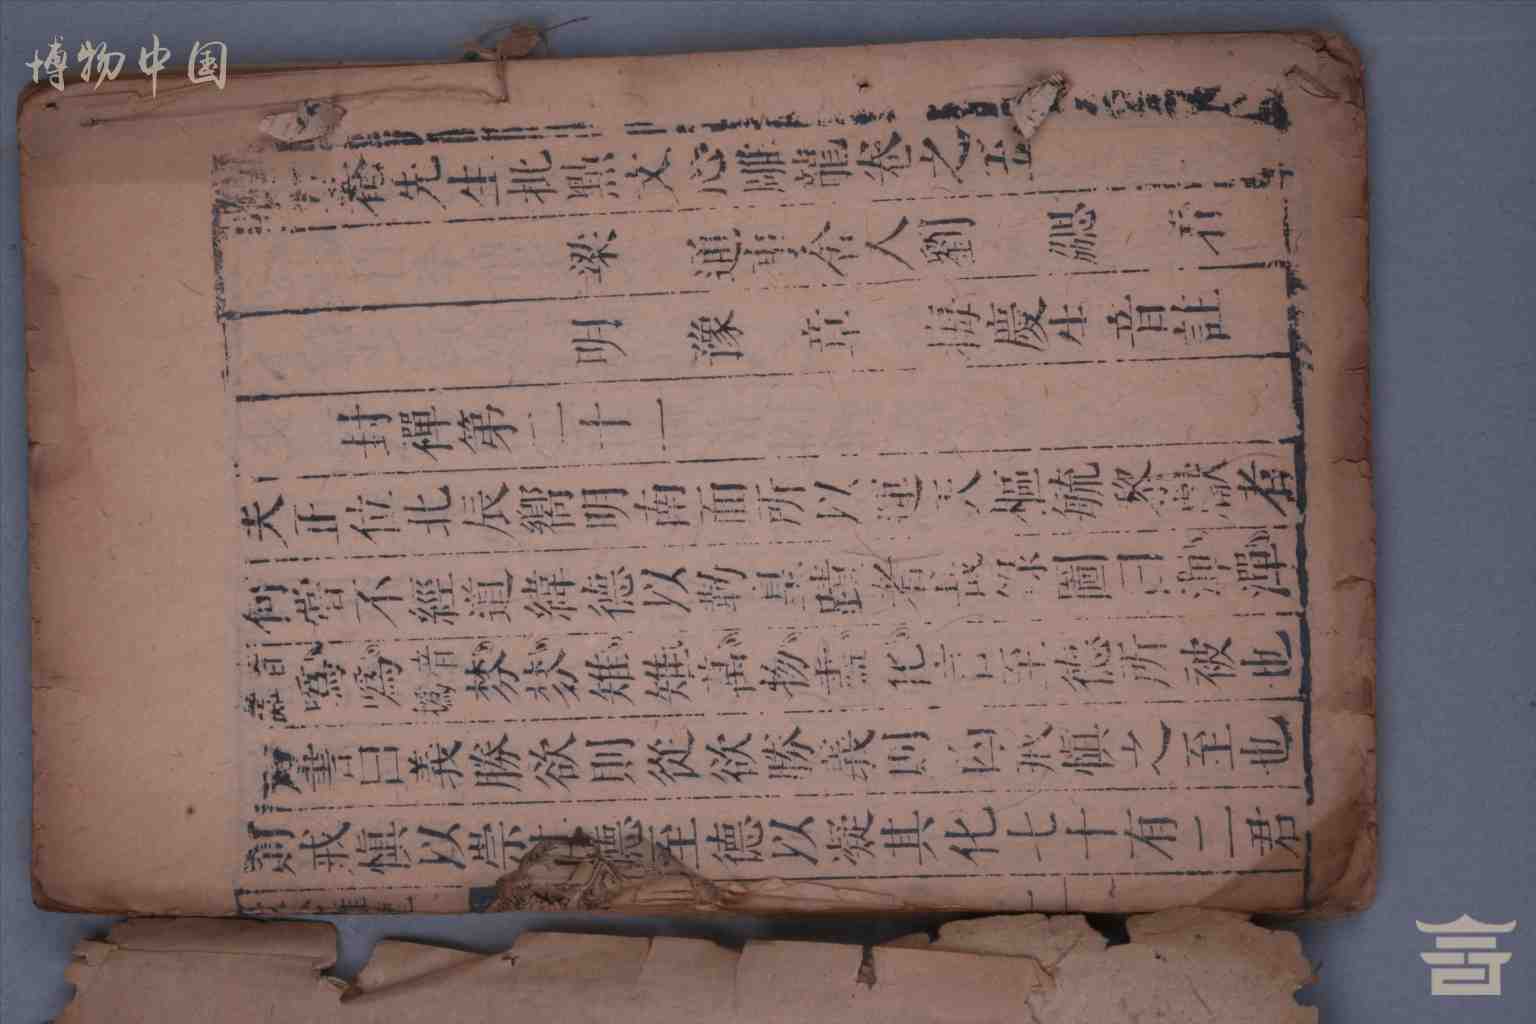 博物中国
菴先生批點文心雕龍卷之五
梁 通事舍人劉 勰 著
明 豫 章 梅慶生音註
封禪第二十一
夫正位北辰嚮明南面所以運天樞毓黎獻者
何嘗不經道緯德以勒皇蹟者哉綠圖曰潬潬
噅噅音撝棼棼雉雉萬物盡化言至德所被也
丹書曰義勝欲則從欲勝義則凶戒慎之至也
則戒慎以崇其德至德以凝其化七十有二君